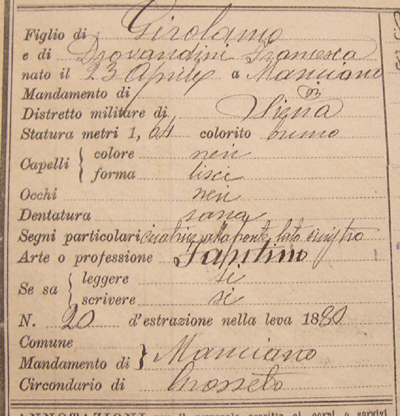 Figlio di Girolamo
e di Drovandini Francesca
nato il 23 Aprile a Manciano
Mandamento di
Distretto militare di Siena
Statura metri 1,64 colorito bruno
Capelli { colore neri
forma lisci
Occhi neri
Dentatura sana
Segni particolari cicatrice alla fronte lato sinistro
Arte o professione
Se sa { leggere si
scrivere si
N. 20 d'estrazione nella leva 1880
Comune
Mandamento di } Manciano
Circondario di Grosseto